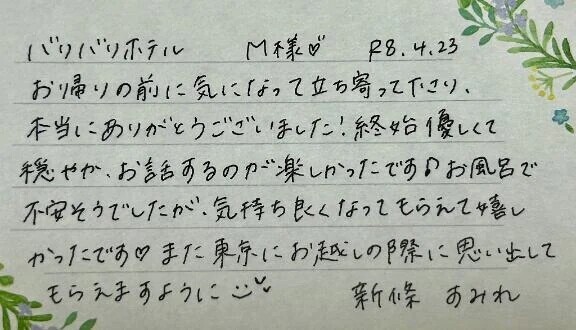 バリバリホテル M様♡ R8.4.23
お帰りの前に気になって立ち寄って下さり、
本当にありがとうございました!終始優しくて
穏やか、お話するのが楽しかったです♪お風呂で
不安そうでしたが、気持ち良くなってもらえて嬉し
かったです♡また東京にお越しの際に思い出して
もらえますように 新條 すみれ